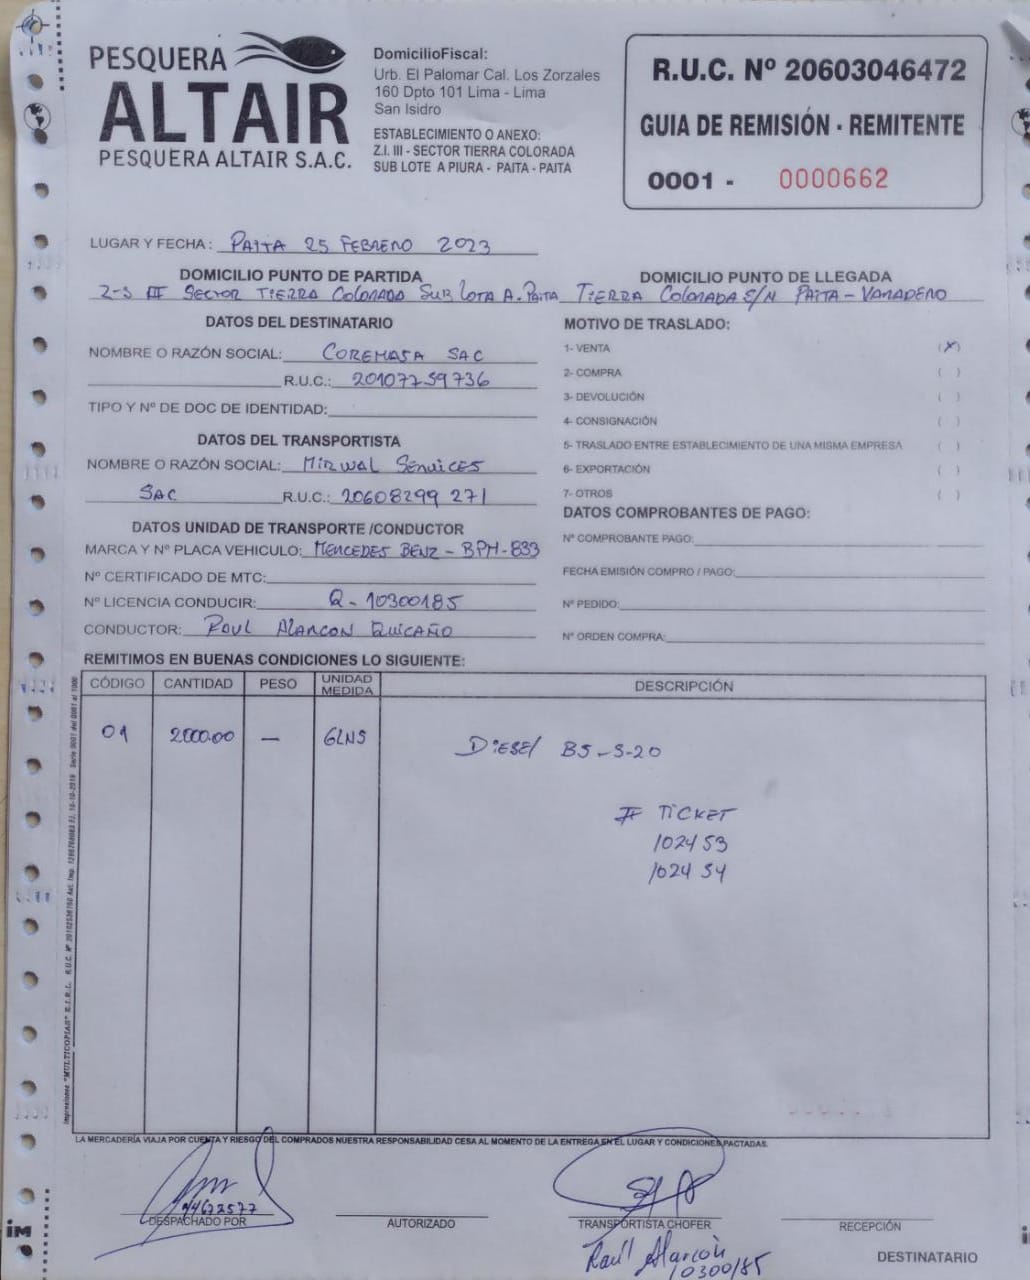 PESQUERA
ALTAIR
PESQUERA ALTAIR S.A.C.
DomicilioFiscal:
Urb. El Palomar Cal. Los Zorzales
160 Dpto 101 Lima - Lima
San Isidro
ESTABLECIMIENTO O ANEXO:
Z.I. III - SECTOR TIERRA COLORADA
SUB LOTE A PIURA - PAITA - PAITA
R.U.C. Nº 20603046472
GUIA DE REMISIÓN - REMITENTE
0001 - 0000662
LUGAR Y FECHA: PAITA 25 FEBRERO 2023
DOMICILIO PUNTO DE PARTIDA
Z-3 III SECTOR TIERRA COLORADA SUB LOTA A. PAITA
DOMICILIO PUNTO DE LLEGADA
TIERRA COLORADA S/N PAITA - VARADERO
DATOS DEL DESTINATARIO
NOMBRE O RAZÓN SOCIAL: COREMASA SAC
R.U.C.: 20107759736
TIPO Y Nº DE DOC DE IDENTIDAD:
DATOS DEL TRANSPORTISTA
NOMBRE O RAZÓN SOCIAL: MIRWAL SERVICES
SAC R.U.C.: 20608299 271
DATOS UNIDAD DE TRANSPORTE /CONDUCTOR
MARCA Y Nº PLACA VEHICULO: MERCEDES BENZ - BPH-833
Nº CERTIFICADO DE MTC:
Nº LICENCIA CONDUCIR: Q-10300185
CONDUCTOR: RAUL ALARCON QUICAÑO
MOTIVO DE TRASLADO:
1- VENTA (X)
2- COMPRA ( )
3- DEVOLUCIÓN ( )
4- CONSIGNACIÓN ( )
5- TRASLADO ENTRE ESTABLECIMIENTO DE UNA MISMA EMPRESA ( )
6- EXPORTACIÓN ( )
7- OTROS ( )
DATOS COMPROBANTES DE PAGO:
Nº COMPROBANTE PAGO:
FECHA EMISIÓN COMPRO / PAGO:
Nº PEDIDO:
Nº ORDEN COMPRA:
REMITIMOS EN BUENAS CONDICIONES LO SIGUIENTE:
CÓDIGO CANTIDAD PESO UNIDAD MEDIDA DESCRIPCIÓN
01 2000.00 — GLNS DIESEL B5-S-20
# TICKET
102453
102454
LA MERCADERÍA VIAJA POR CUENTA Y RIESGO DEL COMPRADOS NUESTRA RESPONSABILIDAD CESA AL MOMENTO DE LA ENTREGA EN EL LUGAR Y CONDICIONES PACTADAS.
DESPACHADO POR
AUTORIZADO
TRANSPORTISTA CHOFER
RECEPCIÓN
Raúl Alarcón
10300185
DESTINATARIO
iM